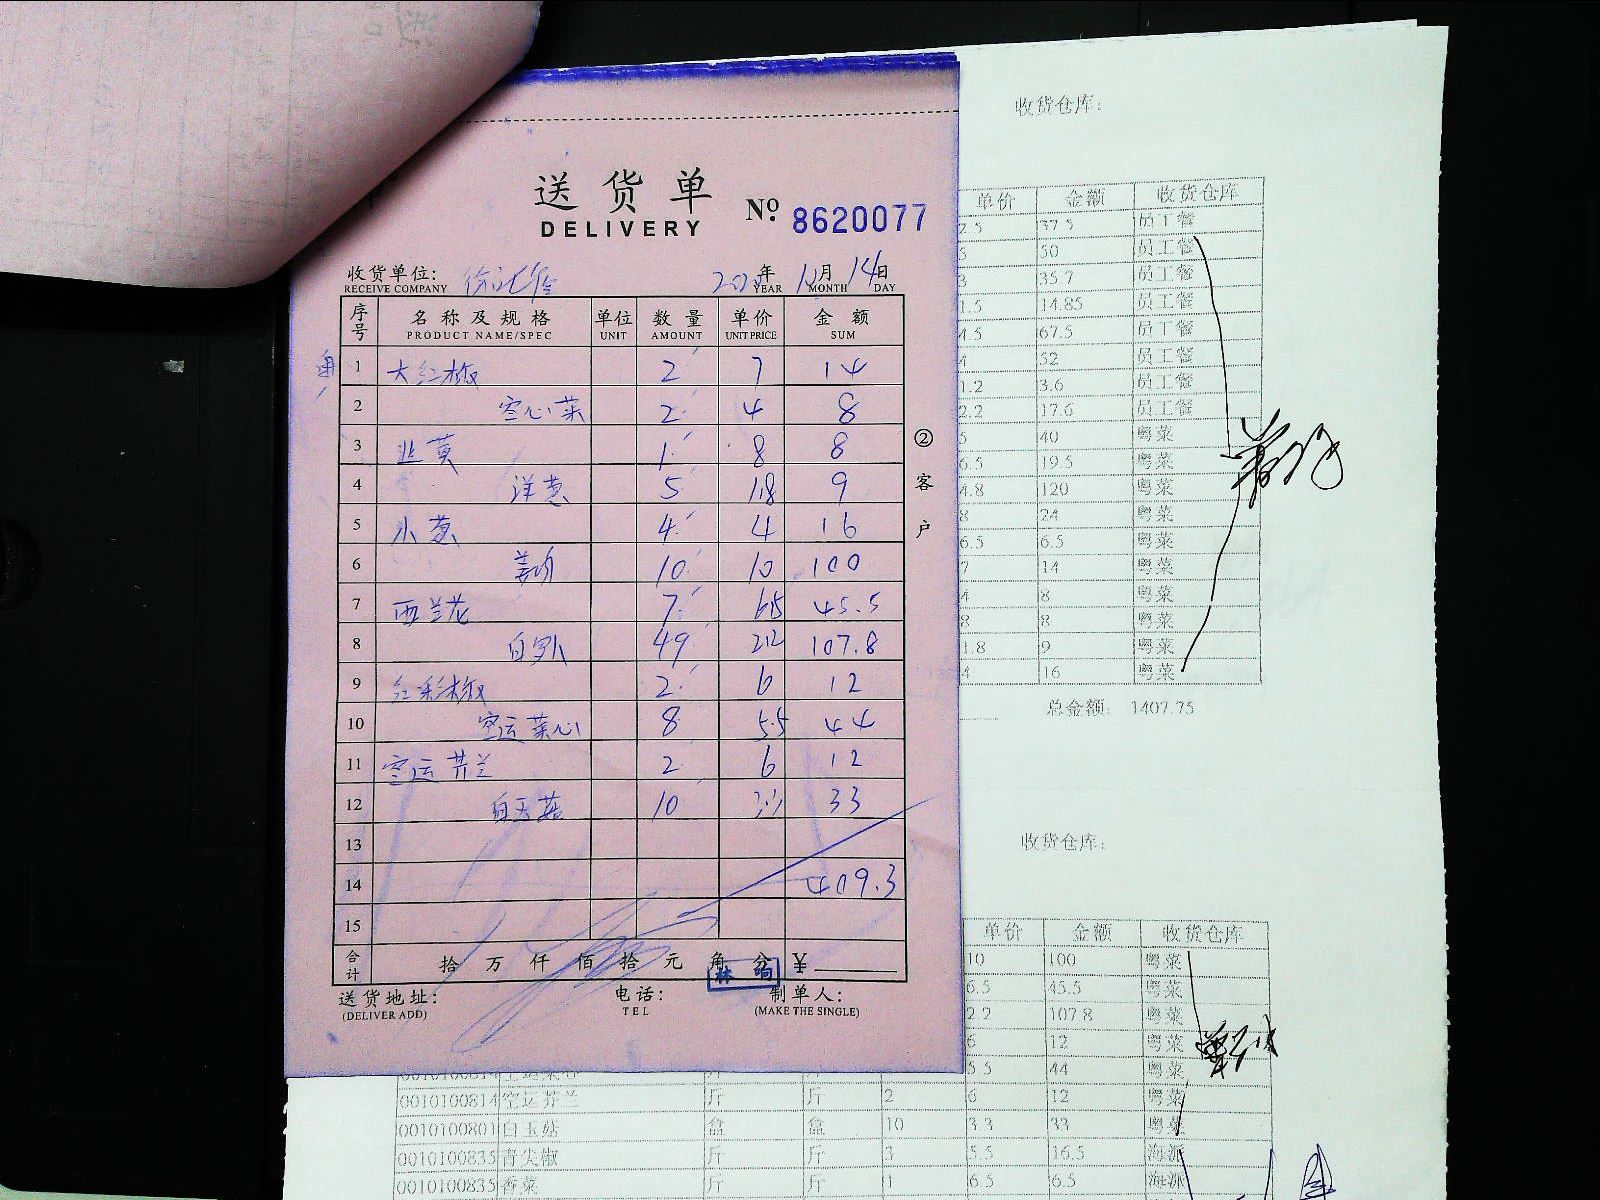 送货单
DELIVERY
№ 8620077
收货单位:
RECEIVE COMPANY
年 YEAR 月 MONTH 14日 DAY
序号 名称及规格 单位 数量 单价 金额
PRODUCT NAME/SPEC UNIT AMOUNT UNIT PRICE SUM
1 大红椒 2 7 14
2 空心菜 2 4 8
3 韭黄 1 8 8
4 洋葱 5 1.8 9
5 小葱 4 4 16
6 姜 10 10 100
7 西兰花 7 6.5 45.5
8 白萝卜 49 2.2 107.8
9 红彩椒 2 6 12
10 空运菜心 8 5.5 44
11 空运芥兰 2 6 12
12 白玉菇 10 3.3 33
13
14 409.3
15
合计 拾万仟佰拾元角分 ¥
送货地址: 电话: 制单人:
(DELIVER ADD) TEL (MAKE THE SINGLE)
②客户
收货仓库:
单价 金额 收货仓库
2.5 37.5 员工餐
50 员工餐
3 35.7 员工餐
1.5 14.85 员工餐
4.5 67.5 员工餐
4 52 员工餐
1.2 3.6 员工餐
2.2 17.6 员工餐
5 40 粤菜
6.5 19.5 粤菜
4.8 120 粤菜
8 24 粤菜
6.5 6.5 粤菜
7 14 粤菜
4 8 粤菜
8 8 粤菜
1.8 9 粤菜
4 16 粤菜
总金额: 1407.75
收货仓库:
单价 金额 收货仓库
10 100 粤菜
6.5 45.5 粤菜
2.2 107.8 粤菜
6 12 粤菜
5.5 44 粤菜
0010100814 空运芥兰 斤 斤 2 6 12 粤菜
0010100801 白玉菇 盒 盒 10 3.3 33 粤菜
0010100835 青尖椒 斤 斤 3 5.5 16.5 海派
0010100835 香菜 斤 斤 1 6.5 6.5 海派